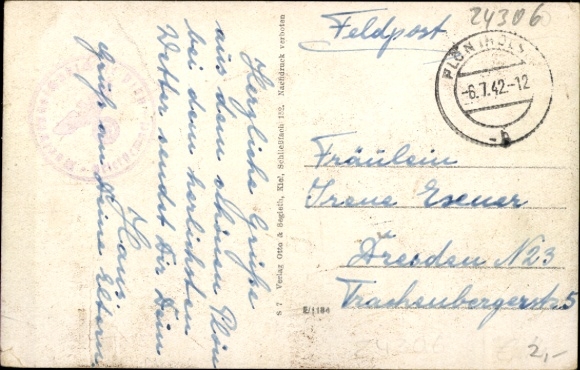 Herzliche Grüße
aus dem schönen Plön
bei dem herlichsten
Wetter sendet Dir Dein
Hans
Gruß an Deine Eltern.
S 7 Verlag Otto & Segleth, Kiel, Schließfach 132. Nachdruck verboten
R/1184
24306
Feldpost
PLÖN (HOLST)
-6.7.42-12
b
Fräulein
Irene Exener
Dresden N 23
Trachenbergerstr 5
2,-